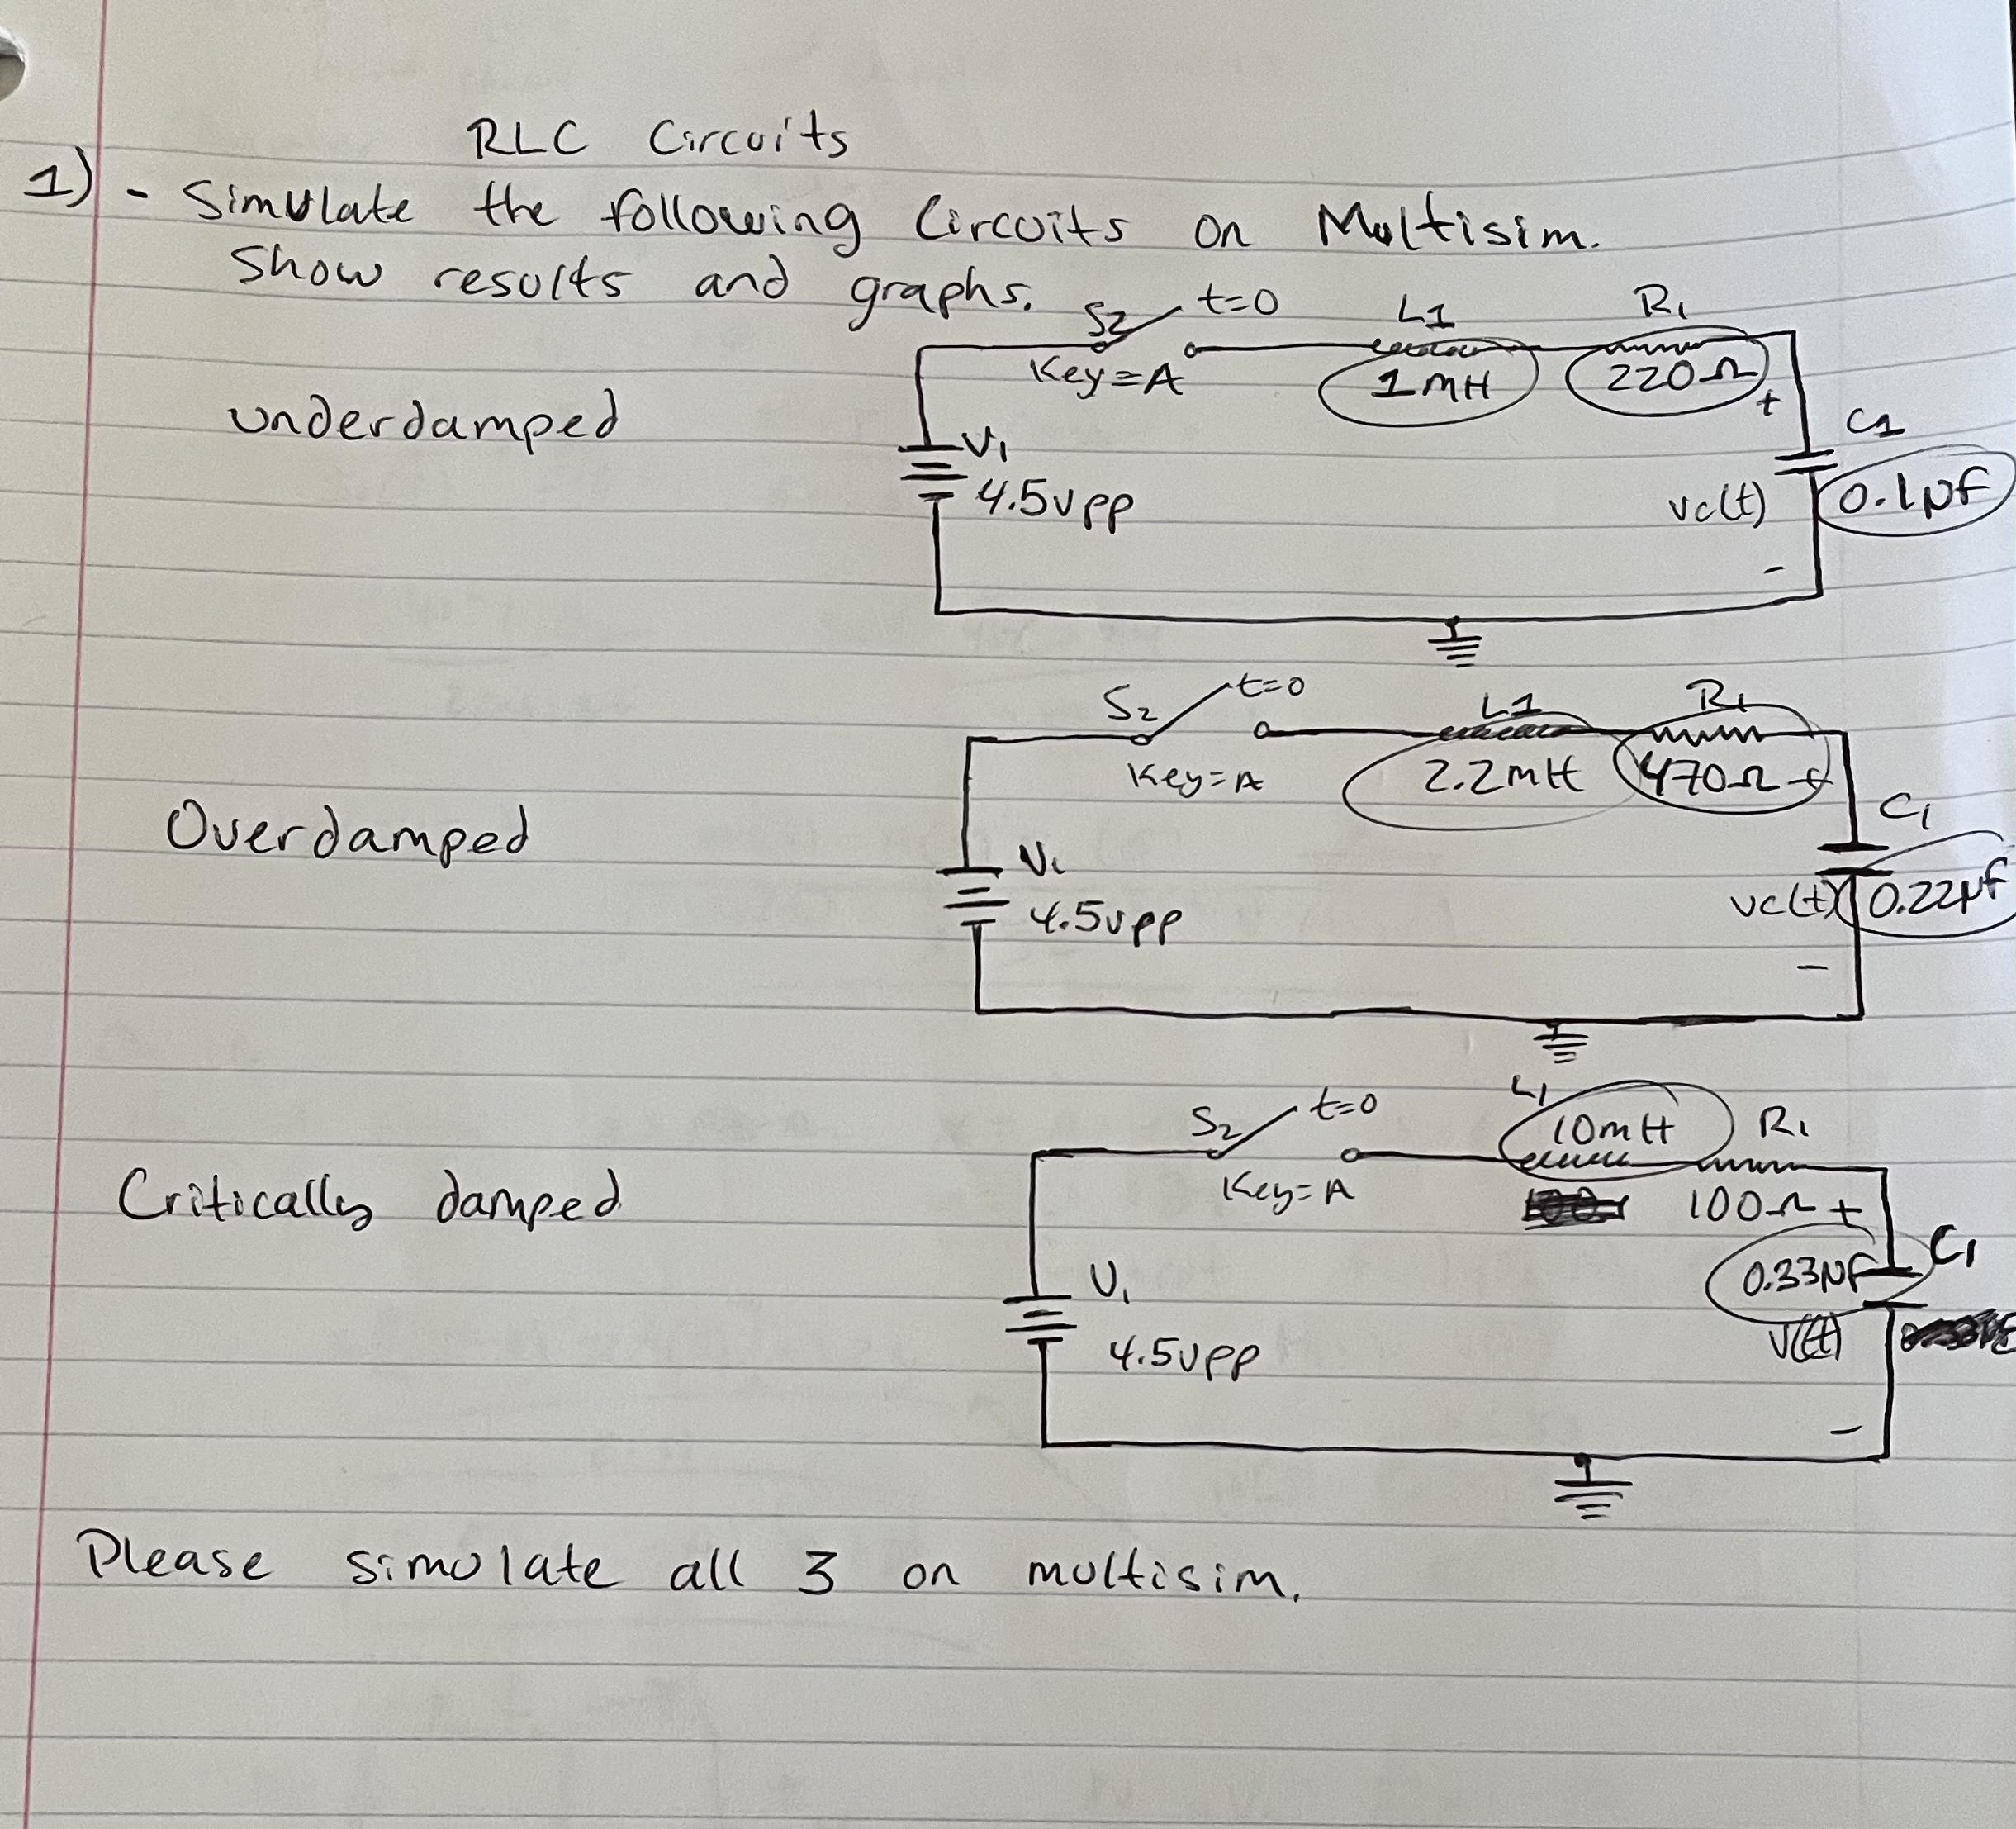 RLC Circuits
1) - Simulate the following Circuits on Multisim.
Show results and graphs.
S2 t=0 L1 R1
Key=A 1mH 220Ω
underdamped
+
C1
V1
4.5vpp vc(t) 0.1μf
-
S2 t=0 L1 R1
Key=A 2.2mH 470Ω +
C1
Overdamped
V1
4.5vpp vc(t) 0.22μf
-
L1
S2 t=0 10mH R1
Key=A 100Ω +
Critically damped
C1
V1 0.33μF
4.5vpp
-
Please simulate all 3 on multisim.